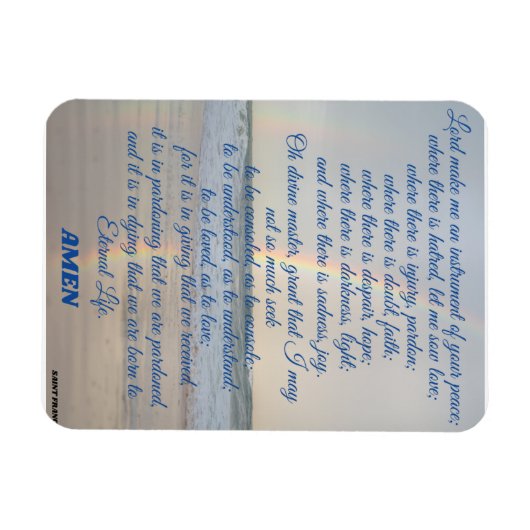 Lord make me an instrument of your peace;
where there is hatred, let me sow love;
where there is injury, pardon;
where there is doubt, faith;
where there is despair, hope;
where there is darkness, light;
and where there is sadness, joy.
Oh divine mater, grant that I may
not so much seek
to be consoled as to console;
to be understood, as to understand,
to be loved, as to love;
for it is in giving that we
it is in pardoning that we are pardoned,
and it is in dying that we are born to
Eternal Life.
AMEN
SAINT FRANC